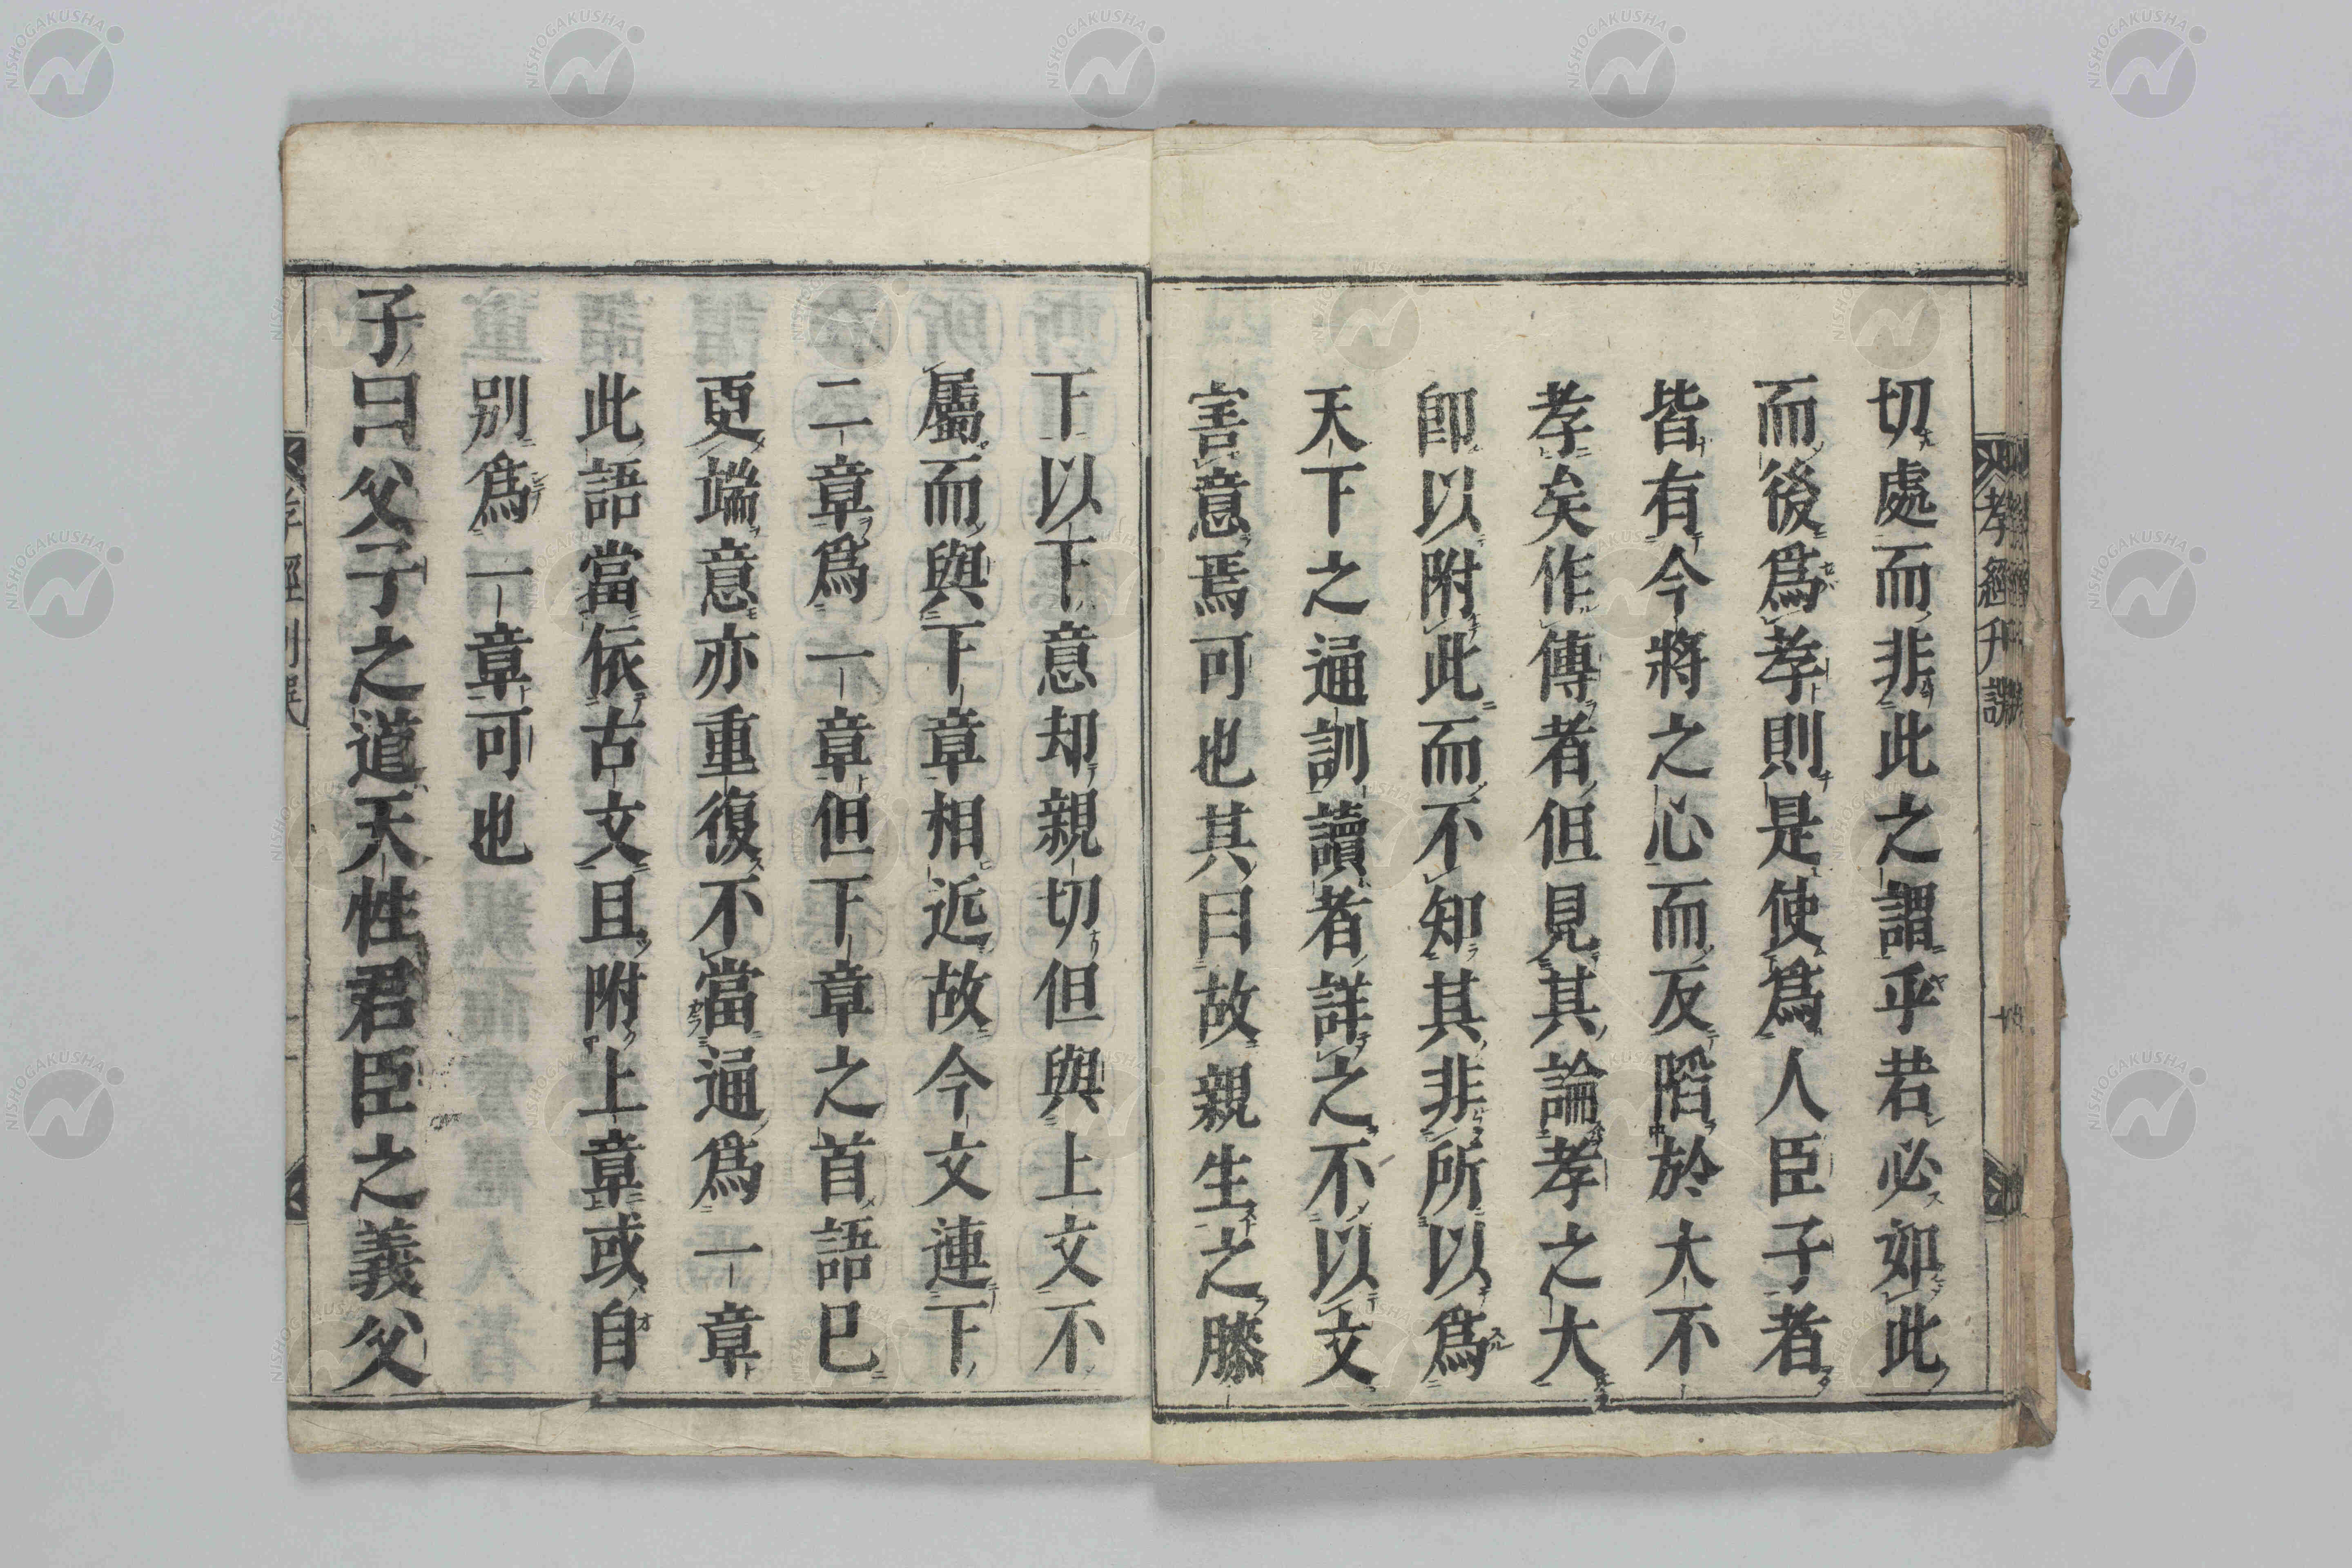 孝經刋誤
切處而非此之謂乎若必如此
而後爲孝則是使爲人臣子者
皆有今將之心而反陷於大不
孝矣作傳者但見其論孝之大
卽以附此而不知其非所以爲
天下之通訓讀者詳之不以文
害意焉可也其曰故親生之膝
下以下意却親切但與上文不
屬而與下章相近故今文連下
二章爲一章但下章之首語已
更端意亦重復不當通爲一章
此語當依古文且附上章或自
別爲一章可也
子曰父子之道天性君臣之義父